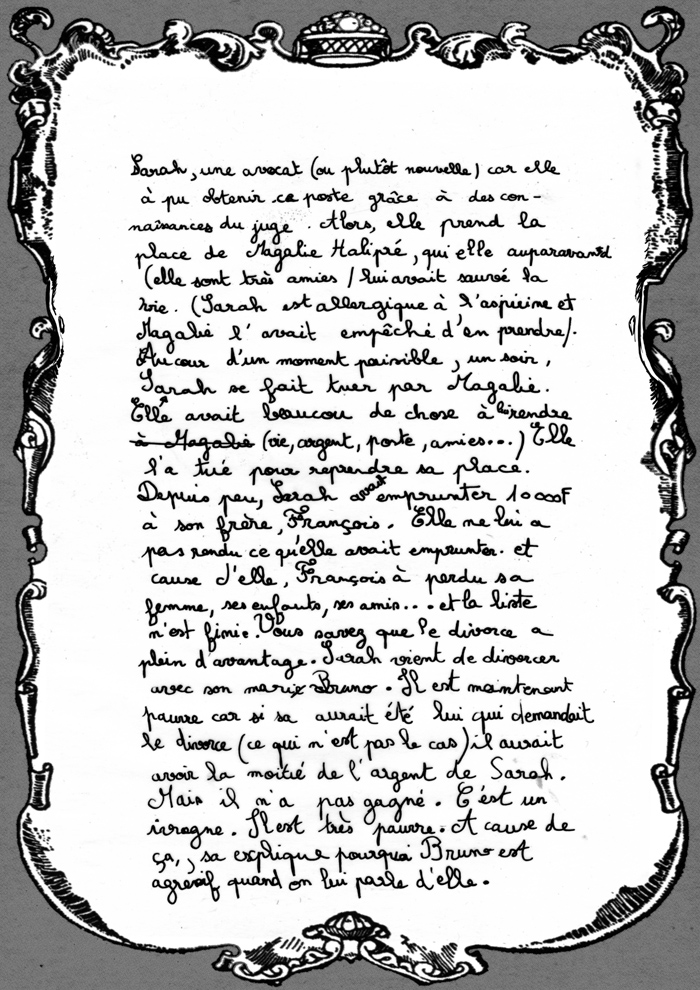 Sarah, une avocat (ou plutôt nouvelle) car elle
à pu obtenir ce poste grâce à des con-
naissances du juge. Alors, elle prend la
place de Magalie Halipré, qui elle auparavant
(elle sont très amies / lui avait sauvé la
vie. (Sarah est allergique à l'aspirine et
Magalie l'avait empêché d'en prendre).
Au cour d'un moment paisible, un soir,
Sarah se fait tuer par Magalie.
Elle avait beaucou de chose à lui rendre
à Magalie (vie, argent, poste, amies...) Elle
l'a tué pour reprendre sa place.
Depuis peu, Sarah avait emprunter 10000F
à son frère, François. Elle ne lui a
pas rendu ce qu'elle avait emprunter. et
cause d'elle, François à perdu sa
femme, ses enfants, ses amis... et la liste
n'est finie. Vous savez que le divorce a
plein d'avantage. Sarah vient de divorcer
avec son marie Bruno. Il est maintenant
pauvre car si sa aurait été lui qui demandait
le divorce (ce qui n'est pas le cas) il aurait
avoir la moitié de l'argent de Sarah.
Mais il n'a pas gagné. C'est un
ivrogne. Il est très pauvre. A cause de
ça, sa explique pourquoi Bruno est
agresif quand on lui parle d'elle.